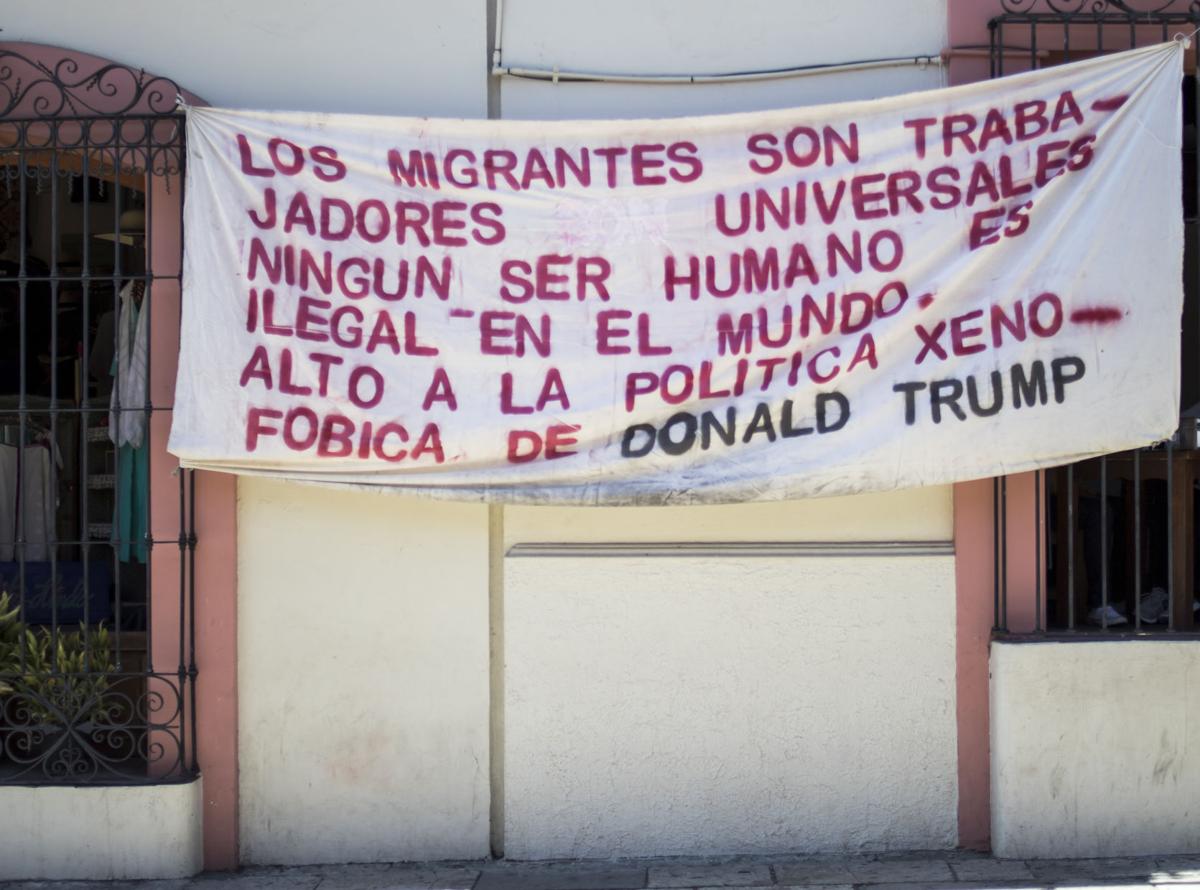 LOS MIGRANTES SON TRABA-
JADORES UNIVERSALES
NINGUN SER HUMANO ES
ILEGAL EN EL MUNDO.
ALTO A LA POLITICA XENO-
FOBICA DE DONALD TRUMP